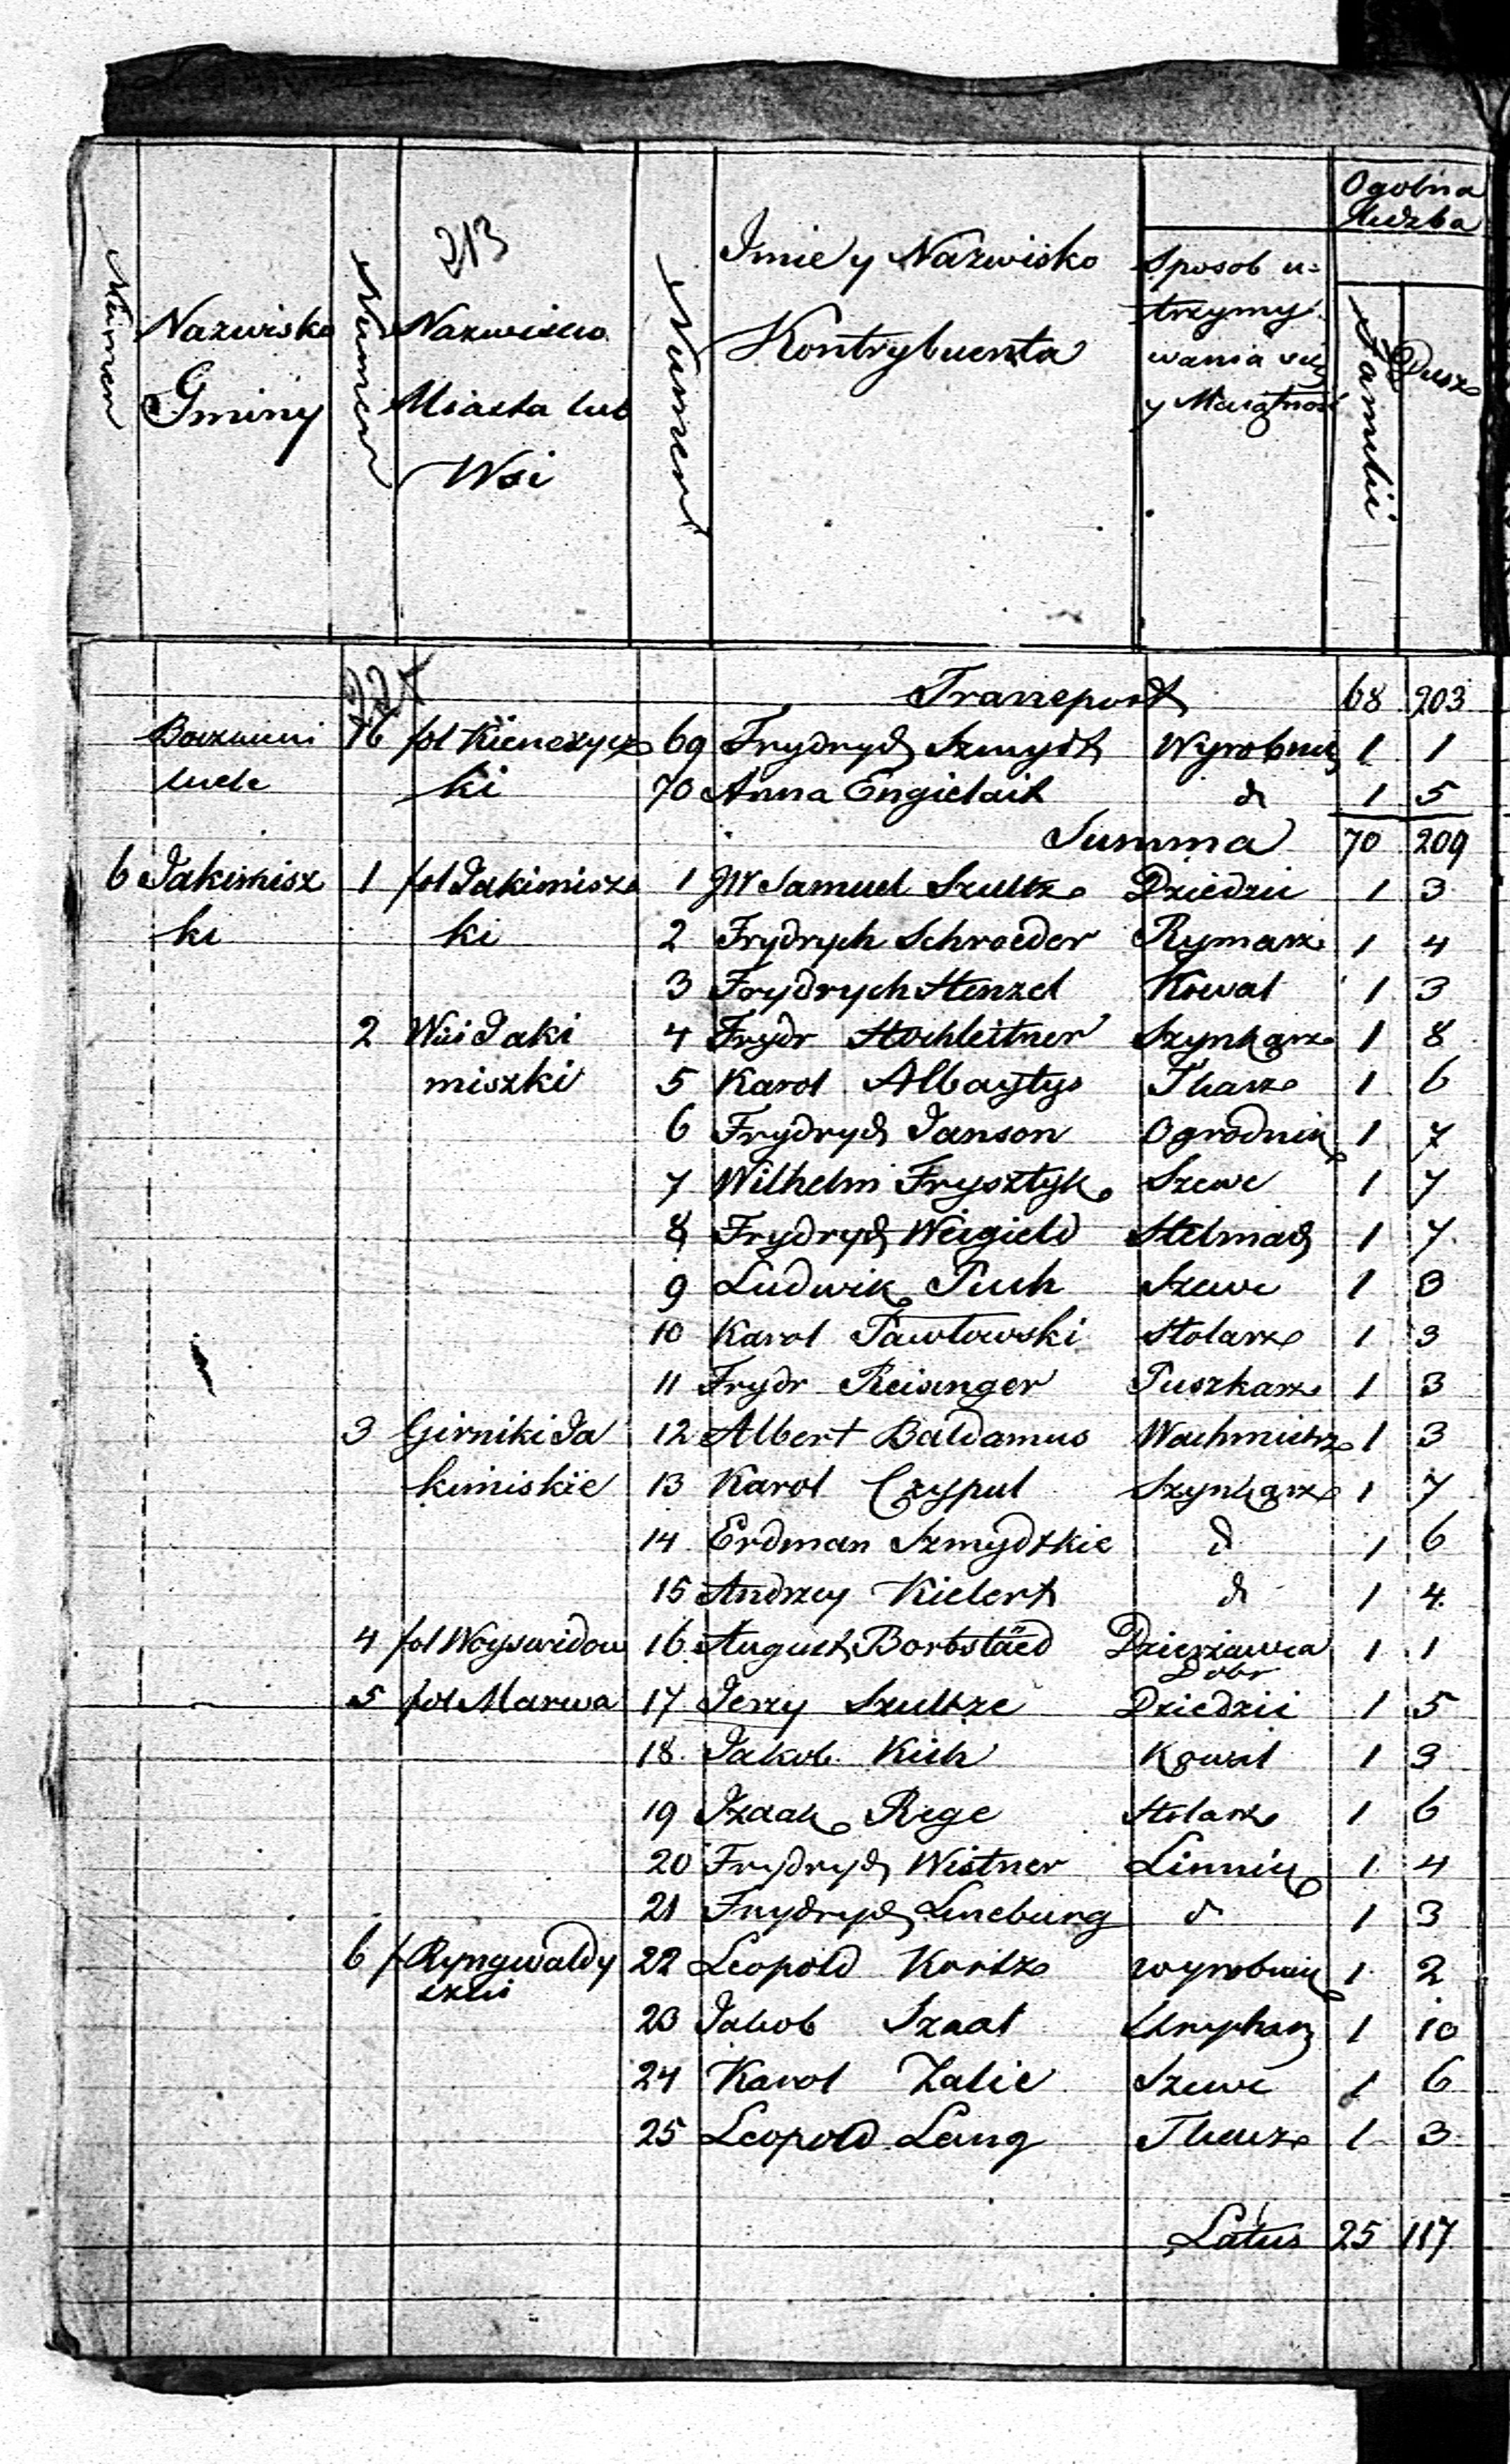 213
Numer
Nazwisko Gminy
Numer
Nazwisko Miasta lub Wsi
Numer
Imie y Nazwisko Kontrybuenta
Sposob u=
trzymy
wania się
y Maiątnosć
Ogolna
liczba
Familii
Dusz
Transport 68 203
16 fol 69 Frydrych Szmydt Wyrobnik 1 1
ki 70 Anna Engielait d 1 5
Summa 70 209
6 Jakimisz 1 fol Jakimisz 1 JW Samuel Szultz Dziedzic 1 3
ki ki 2 Frydrych Schroeder Rymarz 1 4
3 Frydrych Stenzel Kowal 1 3
2 Wieś Jaki 4 Frydr Hochleitner Szynkarz 1 8
miszki 5 Karol Albaytys Tkarz 1 6
6 Frydrych Janson Ogrodnik 1 7
7 Wilhelm Frysztyk Szewc 1 7
8 Frydrych Weigield Stelmach 1 7
9 Ludwik Puch Szewc 1 3
10 Karol Pawłowski Stolarz 1 3
11 Frydr Reisinger Puszkarz 1 3
3 Girniki Ja 12 Albert Baldamus Wachmistrz 1 3
kimiskie 13 Karol Czyput Szynkarz 1 7
14 Erdman Szmydtkie d 1 6
15 Andrzey Kielert d 1 4
4 fol Woyswidow 16 August Borbstäed Dzierżawca 1 1
Dobr
5 fol Marwa 17 Jerzy Szultze Dziedzic 1 5
18 Jakob Kich Kowal 1 3
19 Izaak Rege Stolarz 1 6
20 Frydrych Wistner 1 4
21 Frydrych Lineburg d 1 3
6 f Ryngwaldy 22 Leopold Kortz wyrobnik 1 2
szki
23 Jakob Szaal 1 10
24 Karol Zalie Szewc 1 6
25 Leopold Lang Tkarz 1 3
Latus 25 117